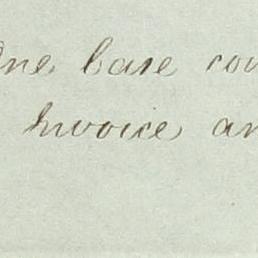 One case con
Invoice an